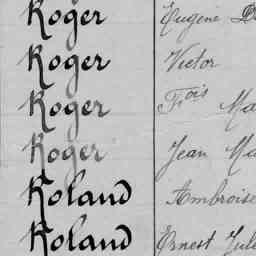 Roger Eugène
Roger Victor
Roger Fois Ma
Roger Jean Ma
Roland Ambroise
Roland Ernest Jule